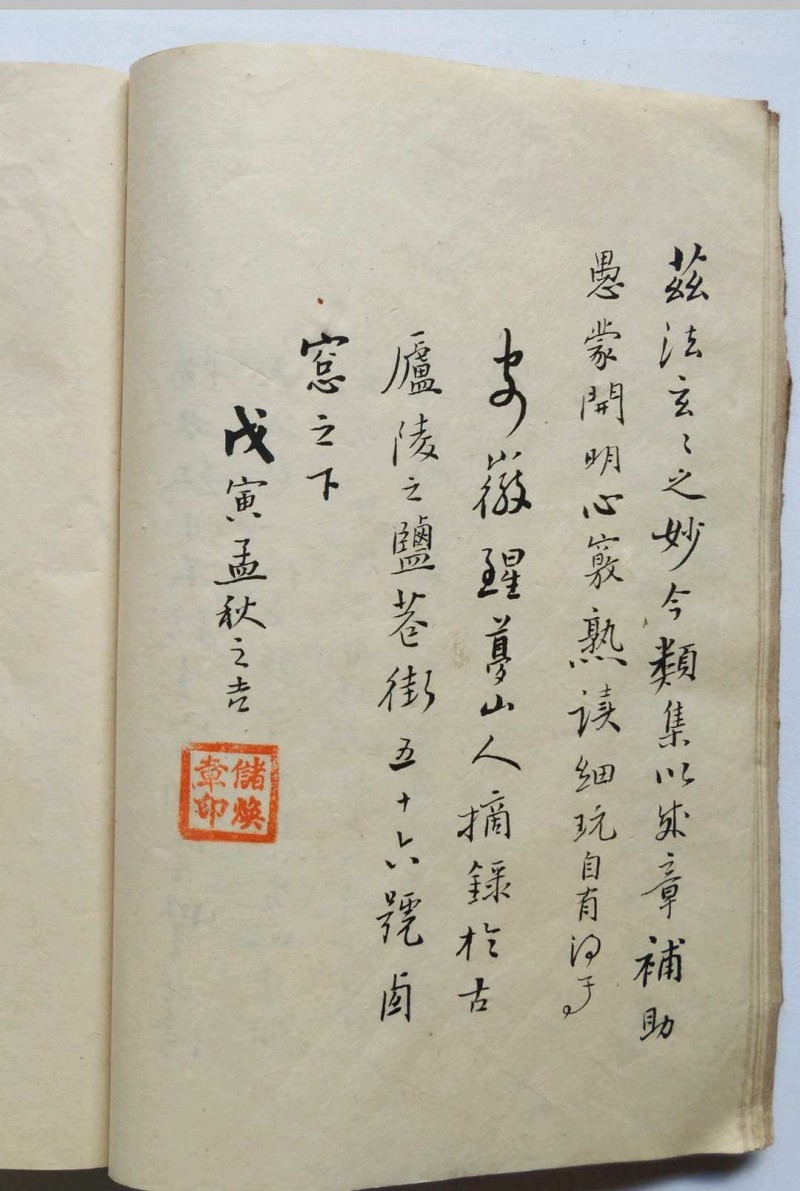 茲法玄〻之妙今類集以成章補助
愚蒙開明心竅熟读細玩自有得
安徽醒夢山人摘錄於古
廬陵之鹽巷街五十六號卥
窓之下
戊寅孟秋之吉
儲煥章印